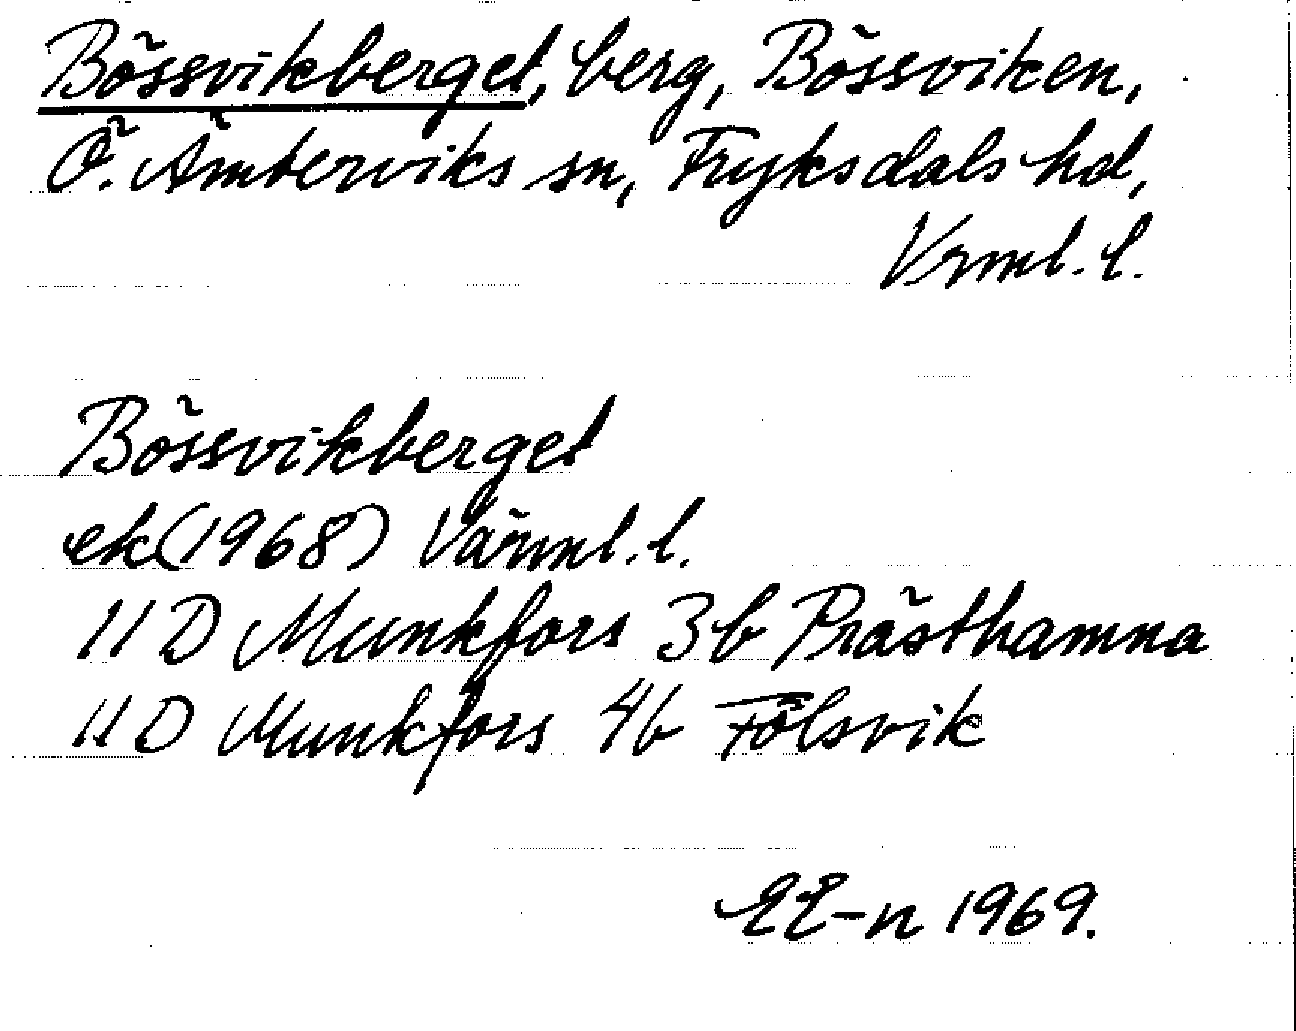 Bössvikberget, berg, Bössviken,
Ö. Ämterviks sn, Fryksdals hd,
Vrml. l.
Bössvikberget
ek (1968) Värml. l.
11 D Munkfors 3b Prästhamna
11 D Munkfors 4b Fölsvik
EE-n 1969.